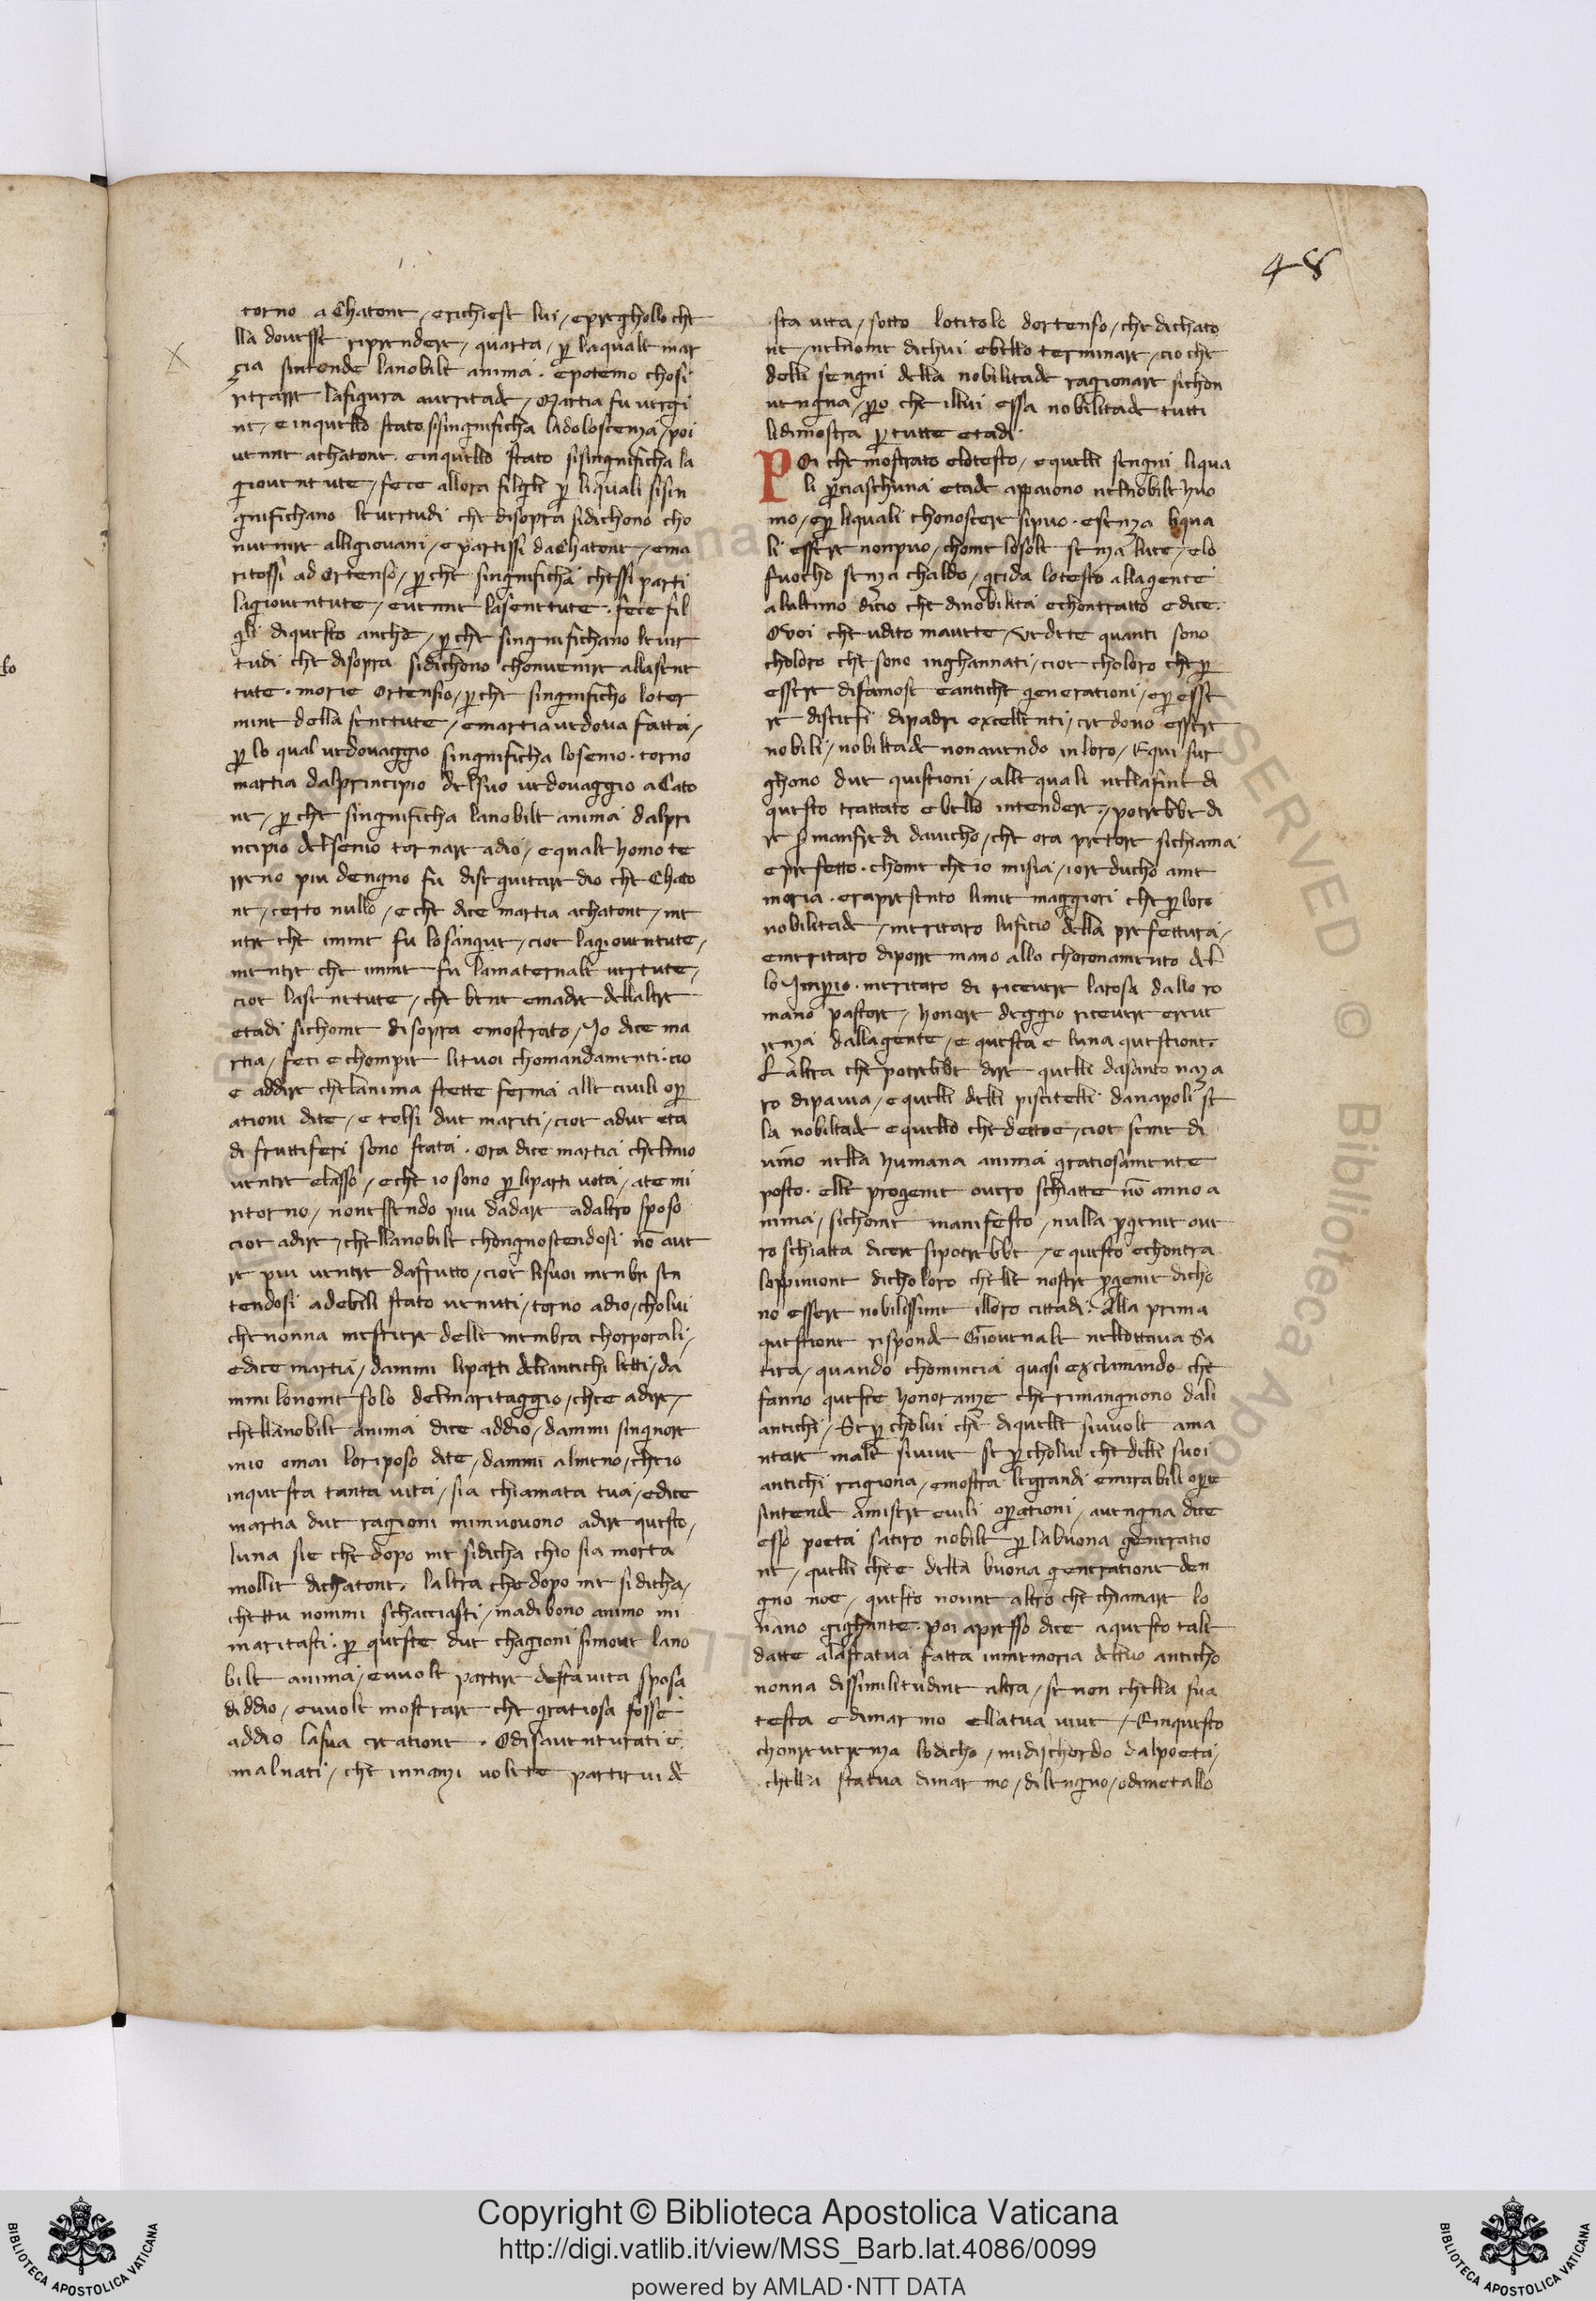 48
torno a Chatone / erichiese lui / epregholloche
lla dovesse riprendere / quarta / p̄ laquale mar
zia sintende lanobile anima . epotemo chosi
ritrarre lafigura averitade / Martia fu vergi
ne / einquello stato sisingnificha ladoloscenza / poi
venne achatone . einquello stato sisingnificha la
gioventute / fece allora filgli p̄ liquali sisin
gnifichano levertudi che disopra sidichono cho
nvenire alligiovani / epartissi dachatone / ema
ritossi ad Ortensio / p̄ che singnificha chessi parti
lagioventute / evenne lasenetute . fece fil
gli diquesto anche / p̄ che singnifichano lever
tudi che disopra sidichono chonvenire allasene
tute . morie Ortensio / p̄ che singnificho loter
mine della senetute / emartia vedova fatta /
p̄ lo qual vedovaggio singnificha losenio . torno
martia dalprincipio delsuo vedovaggio a Cato
ne / p̄ che singnificha lanobile anima dalpri
ncipio delsenio tornare adio / equale homo te
rreno piu dengno fu disengnificare dio che Chato
ne / certo nullo / eche dice martia achatone / me
ntre che imme fu losangue / cioe lagioventute /
mentre che imme fu lamaternale vertute /
cioe lasenetute / che bene emadre dellaltre
etadi sichome disopra emostrato / Io dice ma
rtia / feci echompie lituoi chomandamenti . cio
e addire chelanima stette ferma alle civili op̄
ationi dite / e tolsi due mariti / cioe adue eta
di fruttiferi sono stata . ora dice martia chelmio
ventre elasso / eche io sono p̄ liparti vota / ate mi
ritorno / nonessendo piu dadare adaltro sposo
cioe adire / chellanobile chongnoscendosi nō ave
re piu ventre dafrutto / cioe lisuoi menbri sen
tendosi adebili stato venuti / torno adio / cholui
chenonna mestiere delle membra chorporali /
edice martia / dammi liparti delliantichi letti / da
mmi lonome solo delmaritaggio / chee adire /
chellanobile anima dice addio / dammi singnore
mio omai loriposo dite / dammi almeno / cheio
inquesta tanta vita / sia chiamata tua / edice
martia due ragioni mimuovono adire questo /
luna sie che dopo me sidicha chio sia morta
mollie dichatone . laltra che dopo me sidicha /
chettu nommi schacciasti / madibono animo mi
maritasti . p̄ queste due chagioni simove lano
bile anima / evvole partire destavita sposa
diddio / evvole mostrare che gratiosa fosse
addio lasua creatione . Odisaventurati e
malnati / che innanzi volete partirvi de
sta vita / sotto lotitolo dortenso / che dichato
ne / nelnome dichui ebello terminare / cio che
delli sengni della nobilitade ragionare sichon
vengna / p̄o che illui essa nobilitade tutti
lidimostra p̄ tutte etadi .
Poi che mostrato elotesto / equelli sengni liqua
li p̄ ciaschuna etade appaiono nelnobile huo
mo / ep̄ liquali chonoscere sipuo . esenza liqua
li essere nonpuo / chome losole senza luce / elo
fuocho senza chaldo / grida lotesto allagente
alultimo dicio che dinobilita echontratto edice .
Ovoi che udito mavete / vedete quanti sono
choloro che sono inghannati / cioe choloro che p̄
essere difamose eantiche generationi / ep̄ esse
re discesi dipadri excellenti / credono essere
nobili / nobilitade nonavendo in loro / Equi sur
ghono due quistioni / alle quali nellafine di
questo trattato ebello intendere / potrebbe di
re s̄ manfredi davicho / che ora pretore sichiama
eprefetto . chome cheio misia / ioreducho ame
moria . erapresento limie maggiori che p̄ loro
nobilitade / meritaro luficio della prefettura /
emeritaro diporre mano allo choronamento del
lo Imperio . meritaro di ricevere larosa dallo ro
mano pastore / honore deggio ricevere ereve
renza dallagente / e questa e luna questione .
Laltra che potrebbe dire quelli dasanto naza
ro dipavia / e quelli delli piscitelli danapoli se
la nobilitade equello chedettoe / cioe seme di
vino nella humana anima gratiosamente
posto . elle progenie overo schiatte nō anno a
nima / sichome manifesto / nulla p̄genie ove
ro schiatta dicere sipotrebbe / e questo echontra
loppinione dicholoro chelle nostre p̄genie dicho
no essere nobilissime illoro cittadi . Alla prima
questione risponde Giovenale nellottava Sa
tira / quando chomincia quasi exclamando che
fanno queste honoranze cherimangnono dali
antichi / Se p̄ cholui che diquelle sivvole ama
ntare male sivive se p̄ cholui che delli suoi
antichi ragiona / emostra legrandi emirabili op̄e
sintende amisere evili op̄ationi / avengna dice
esso poeta satiro nobile p̄ labuona generatio
ne / quelli chee della buona generatione den
gno noe / questo nonne altro che chiamare lo
nano gighante . poi apresso dice aquesto tale
datte alastatua fatta inmemoria deltuo anticho
nonna dissimilitudine altra / se non chella sua
testa edimarmo ellatua vive / Einquesto
chonreverenza lodicho / midischordo dalpoeta /
chella statua dimarmo / dilengno / odimetallo
Copyright © Biblioteca Apostolica Vaticana
http://digi.vatlib.it/view/MSS_Barb.lat.4086/0099
powered by AMLAD·NTT DATA
BIBLIOTECA APOSTOLICA VATICANA
BIBLIOTECA APOSTOLICA VATICANA